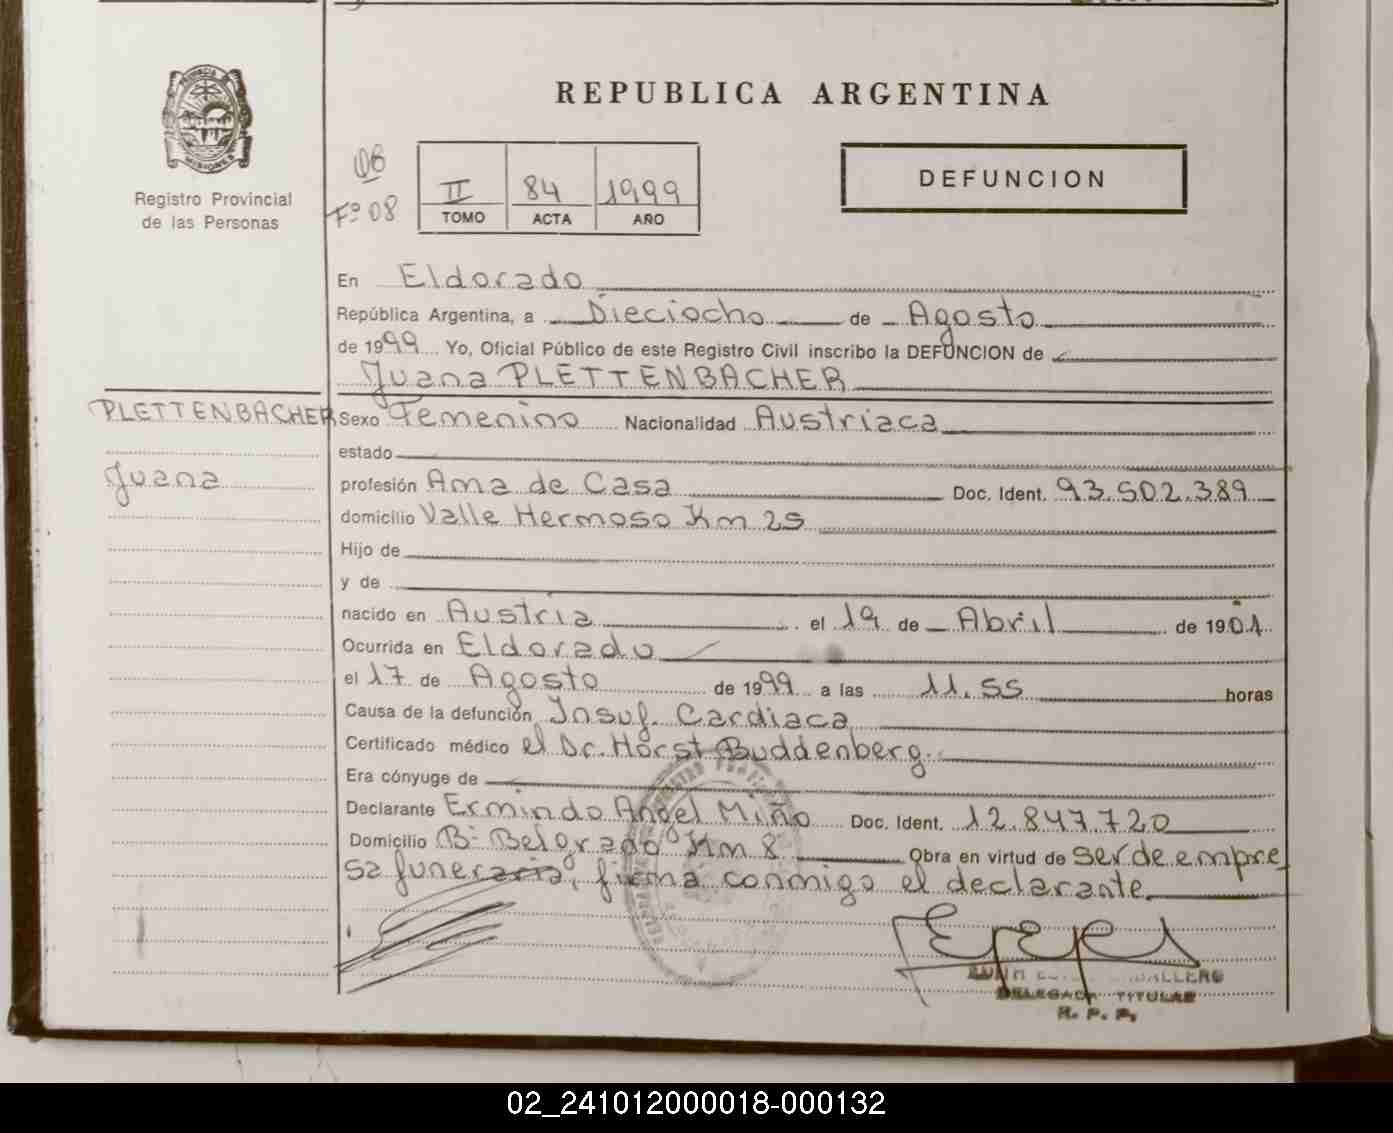 REPUBLICA ARGENTINA
PROVINCIA DE
MISIONES
Registro Provincial
de las Personas
06
Fº 08
II 84 1999
TOMO ACTA AÑO
DEFUNCION
En Eldorado
República Argentina, a Dieciocho de Agosto
de 1999 Yo, Oficial Público de este Registro Civil inscribo la DEFUNCION de
Juana PLETTENBACHER
PLETTENBACHER
Juana
Sexo Femenino Nacionalidad Austriaca
estado
profesión Ama de Casa Doc. Ident. 93.502.389
domicilio Valle Hermoso Km 25
Hijo de
y de
nacido en Austria el 19 de Abril de 1901
Ocurrida en Eldorado
el 17 de Agosto de 1999 a las 11.55 horas
Causa de la defunción Insuf. Cardiaca
Certificado médico el Dr. Horst Buddenberg.
Era cónyuge de
Declarante Ermindo Angel Miño Doc. Ident. 12.847.720
Domicilio Bº Belgrano Km 8 Obra en virtud de ser de empre
sa funeraria, firma conmigo el declarante.
DELEGADA TITULAR
R. P. P.
02_241012000018-000132